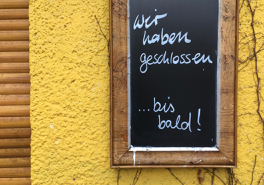 wir
haben
geschlossen
...bis
bald!